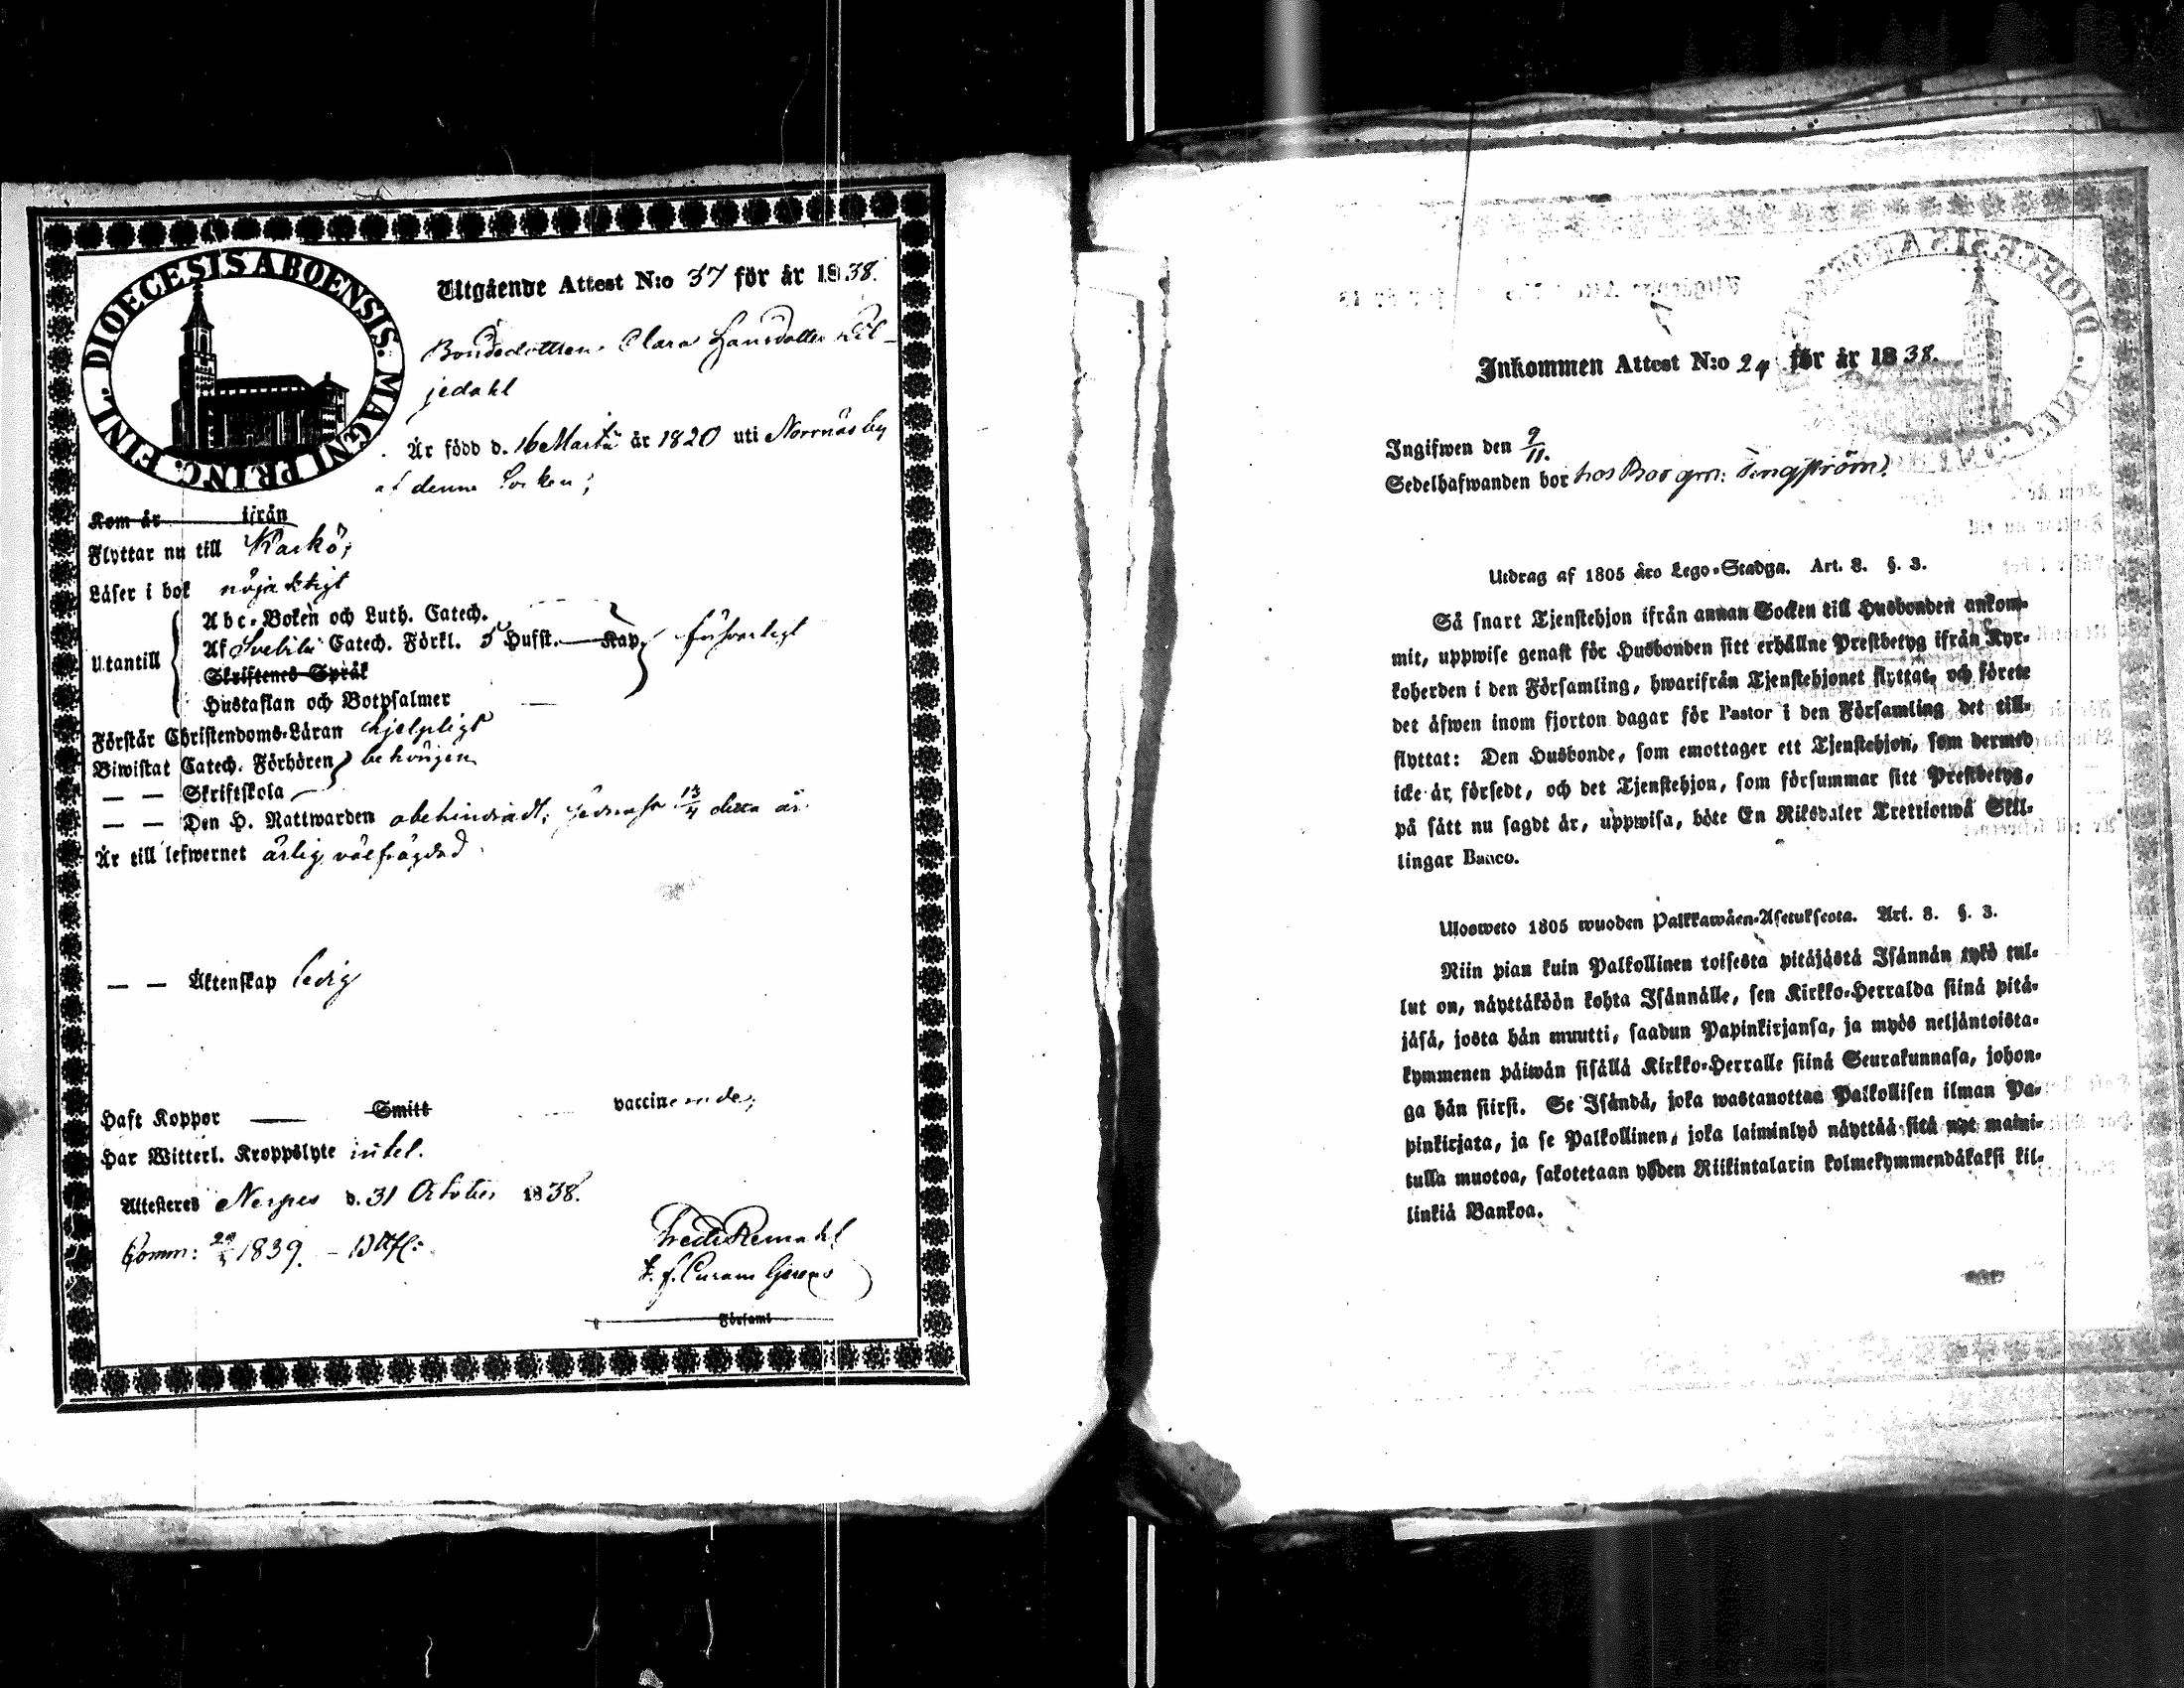 DIOECESIS ABOENSIS. MAGNI PRINC. FINL.
Utgående Attest N:o 37 för år 1838.
Bondedottren Clara Hansdotter Lil-
jedahl
Är född d. 16 Martii år 1820 uti Norrnäs by
af denna Socken;
Kom år ifrån
Flyttar nu till Kaskö;
Läser i bok nöjaktigt
Utantill
Abc-Boken och Luth. Catech.
Af Svebilii Catech. Förkl. 5 Hufst. Kap. försvarligt
Skriftenes Språk
Hustaflan och Botpsalmer —
Förstår Christendoms-Läran hjelpligt
Biwistat Catech. Förhören behörigen
— — Skriftskola
— — Den H. Nattwarden obehindradt; sednast 13/4 detta år.
Är till lefwernet ärlig, välfrägdad
— — Äktenskap ledig
Haft Koppor — Smitt vaccinerade;
Har Witterl. Kroppslyte intet.
Attesteras Nerpes d. 31 October 1838.
Comm: 1839.
Fredr Remahl
t. f. Curam Gerens
Församl
Inkommen Attest N:o 24 för år 1838.
Ingifwen den 9/11.
Sedelhafwanden bor hos Borgm: Tengström.
Utdrag af 1805 års Lego-Stadga. Art. 8. §. 3.
Så snart Tjenstehjon ifrån annan Socken till Husbonden ankom-
mit, uppwise genast för Husbonden sitt erhållne Prestbetyg ifrån Kyr-
koherden i den Församling, hwarifrån Tjenstehjonet flyttat, och förete
det äfwen inom fjorton dagar för Pastor i den Församling det till-
flyttat: Den Husbonde, som emottager ett Tjenstehjon, som dermed
icke är försedt, och det Tjenstehjon, som försummar sitt Prestbetyg,
på sätt nu sagdt är, uppwisa, böte En Riksdaler Trettiotwå Skil-
lingar Banco.
Ulosweto 1805 wuoden Palkkawäen-Asetuksesta. Art. 8. §. 3.
Niin pian kuin Palkollinen toisesta pitäjästä Isännän tykö tul-
lut on, näyttäköön kohta Isännälle, sen Kirkko-Herralda siinä pitä-
jäsä, josta hän muutti, saadun Papinkirjansa, ja myös neljäntoista-
kymmenen päiwän sisällä Kirkko-Herralle siinä Seurakunnasa, johon-
ga hän siirsi. Se Isändä, joka wastanottaa Palkollisen ilman Pa-
pinkirjata, ja se Palkollinen, joka laiminlyö näyttää sitä nyt maini-
tulla muotoa, sakotetaan yhden Riikintalarin kolmekymmendäkaksi kil-
linkiä Bankoa.